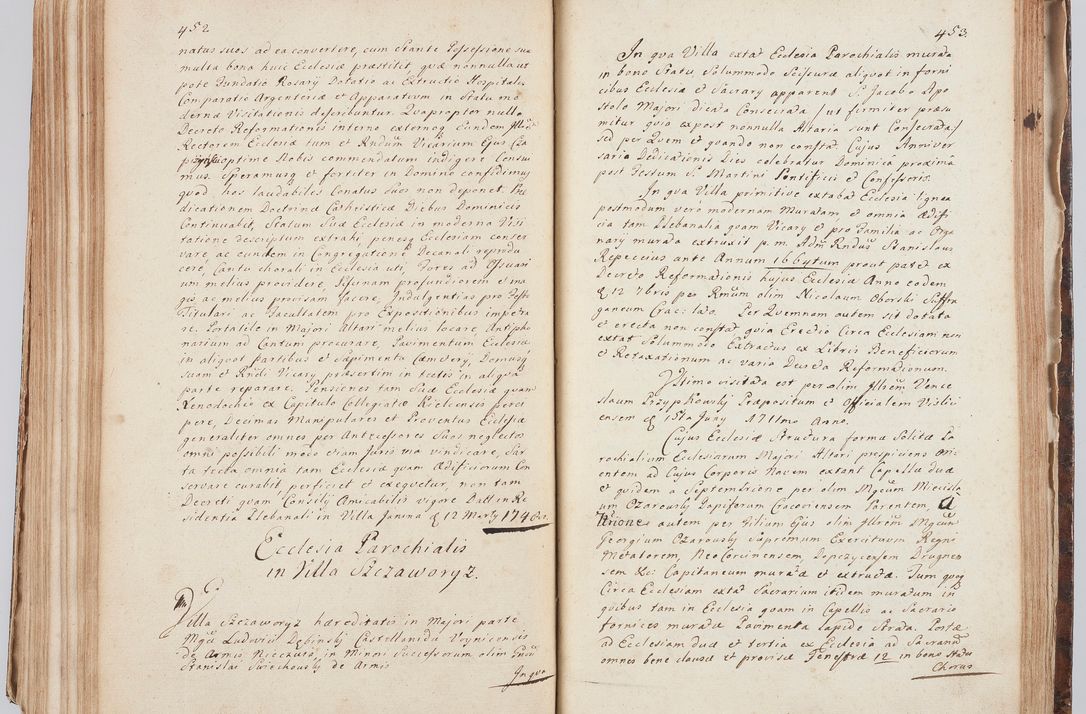 452
natus suos ad ea convertere, cum stante Possessione sua
multa bona huic Ecclesiæ præstitit, quæ nonnulla ut
pote Fundatio Rosarij Dotatio ac Extructio Hospitalis
Comparatio Argenteriæ et Apparatuum in Statu mo
derna Visitationis describuntur. Quapropter nullo
Decreto Reformationis interno externoq eundem
Rectorem Ecclesiæ tum et Rndum Vicarium Ejus Ca
optime Nobis commendatum indigere Censui
mus. Speramusq et fortiter in Domino confidimus
quod hos laudabiles Conatus suos non deponet. Præ
dicationem Doctrinæ Cathristicæ Diebus Dominicis
Continuabit, Statum Suæ Ecclesiæ in moderna Visi
tatione descriptum extrahi penesq Ecclesiam conser
vare, ac eundem in Congregatione Decanali reprodu
cere, Cantu chorali in Ecclesia uti, Fores ad Ossuari
um melius providere, Piscinam profundiorem et ma
gis ac melius præcisam facere, Indulgentias pro Festo
Titulari ac Facultatem pro Expositionibus impetra
re. Portatile in Majori Altari melius locare, Antipho
narium ad Cantum procurare, Pavimentum Ecclesiæ
in aliquot partibus et Sepimenta Cæmeterij, Domusq
suam et Rndi Vicary præsertim in tectis in aliqua
parte reparare. Pensiones tam Suæ Ecclesiæ quam
Xenodochio ex Capitulo Collegiatæ Kielcensis perci
pere, Decimas Manipulares et Proventus Ecclesiæ
generaliter omnes per Antecessores Suos neglectos
omni possibili modo etiam Juris via vindicare, Sar
ta tecta omnia tam Ecclesiæ quam Ædificiorum Con
servare curabit perficiet et exequetur, non tam
Decreti quam Consilij Amicabilis vigore Datt: in Re
sidentia Plebanali in Villa Janina d 12 Marty 174
Ecclesia Parochialis
in Villa Szczaworyz.
Villa Szczaworyz hæreditatis in Majori parte
Mgci Ludovici Dębinski Castellanidæ Woynicensis
de Armis Nieczuia, in Minori Successorum olim Gnsi
Stanislai Swiechowski de Armis
In qua
453
In qua Villa extat Ecclesia Parochialis murata
in bono Statu, Solummodo Scissuræ aliquot in forni
cibus Ecclesiæ et Sacrary apparent S. Jacobo Apo
stolo Majori dicata Consecrata /ut firmiter præsu
mitur quia ex post nonnulla Altaria sunt Consecrata/
sed per Quem et quando non constat. Cujus Anniver
saria Dedicationis Dies celebratur Dominica proxima
post Festum S. Martini Pontificis et Confessoris.
In qua Villa primitive extabat Ecclesia lignea
postmodum vero modernam Muratam, et omnia Ædifi
cia tam Plebanalia quam Vicary et pro Familia ac Orga
nary murata extruxit p. m. Adm Rndus Stanislaus
Repecius ante Annum 1664tum prout patet ex
Decreto Reformationis hujus Ecclesiæ Anno eodem
d 12 7bris per Rmum olim Nicolaum Oborski Suffra
ganeum Crac: lato. Per Quemnam autem sit dotata
et erecta non constat quia Erectio Circa Ecclesiam non
extat Solummodo Extractus ex Libris Beneficiorum
et Retaxationum ac varia Decreta Reformationum.
Ultimo visitata est per olim Illrem Vence
slaum Przypkowski Præpositum et Officialem Vislici
ensem d 15ta July 1711mo Anno.
Cujus Ecclesiæ Structura forma Solita Pa
rochialium Ecclesiarum Majori Altari prospiciens Ori
entem ad Cujus Corporis Navem extant Capellæ duæ
et quidem a Septemtrione per olim Mgcum Miecisla
um Ozarowski Dapiferum Cracoviensem Parentem, a
autem per Filium Ejus olim Illrem Mgcum
Georgium Ozarowski Supremum Exercituum Regni
Metatorem, NeoCorcinensem, Depczycensem Drugnen
sem &c: Capitaneum murata et extructa. Tum quoq
Circa Ecclesiam extat Sacrarium itidem muratum in
quibus tam in Ecclesia quam in Capellis ac Sacrario
fornices muratæ Pavimenta lapide Strata. Portæ
ad Ecclesiam duæ et tertia ex Ecclesia ad Sacrarium
omnes bene clausæ et provisæ Fenestræ 12 in bono Statu
Chorus